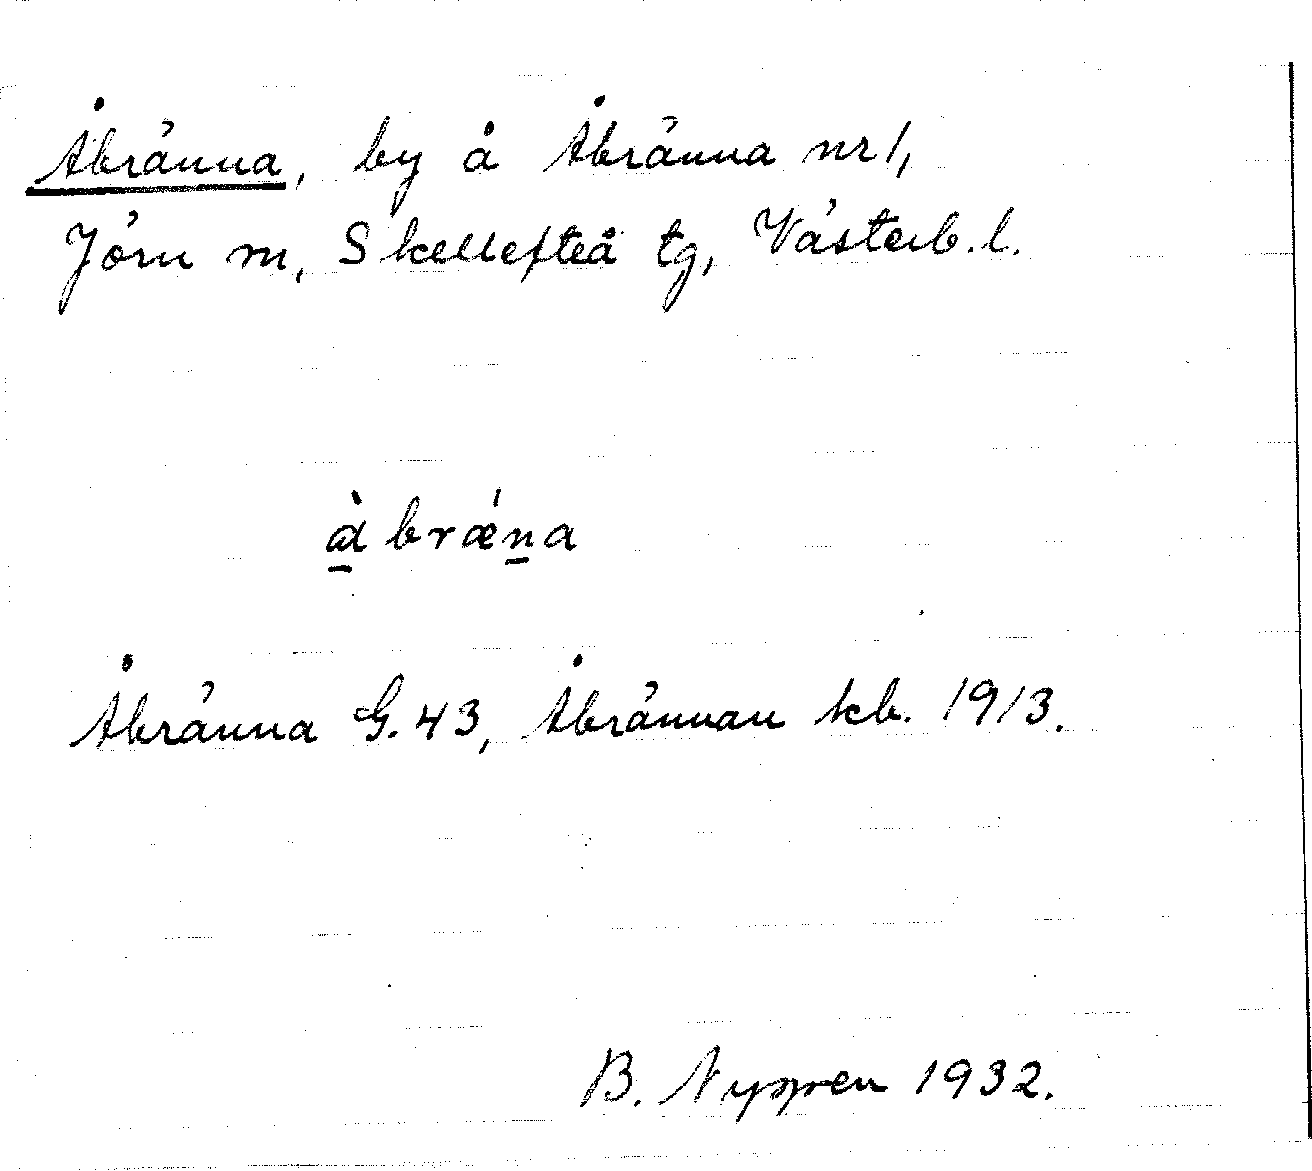 Åbränna, by å Åbränna nr 1,
Jörn sn, Skellefteå tg, Västerb. l.
å̀brǽna
Åbränna G. 43, Åbrännan kb. 1913.
B. 1932.